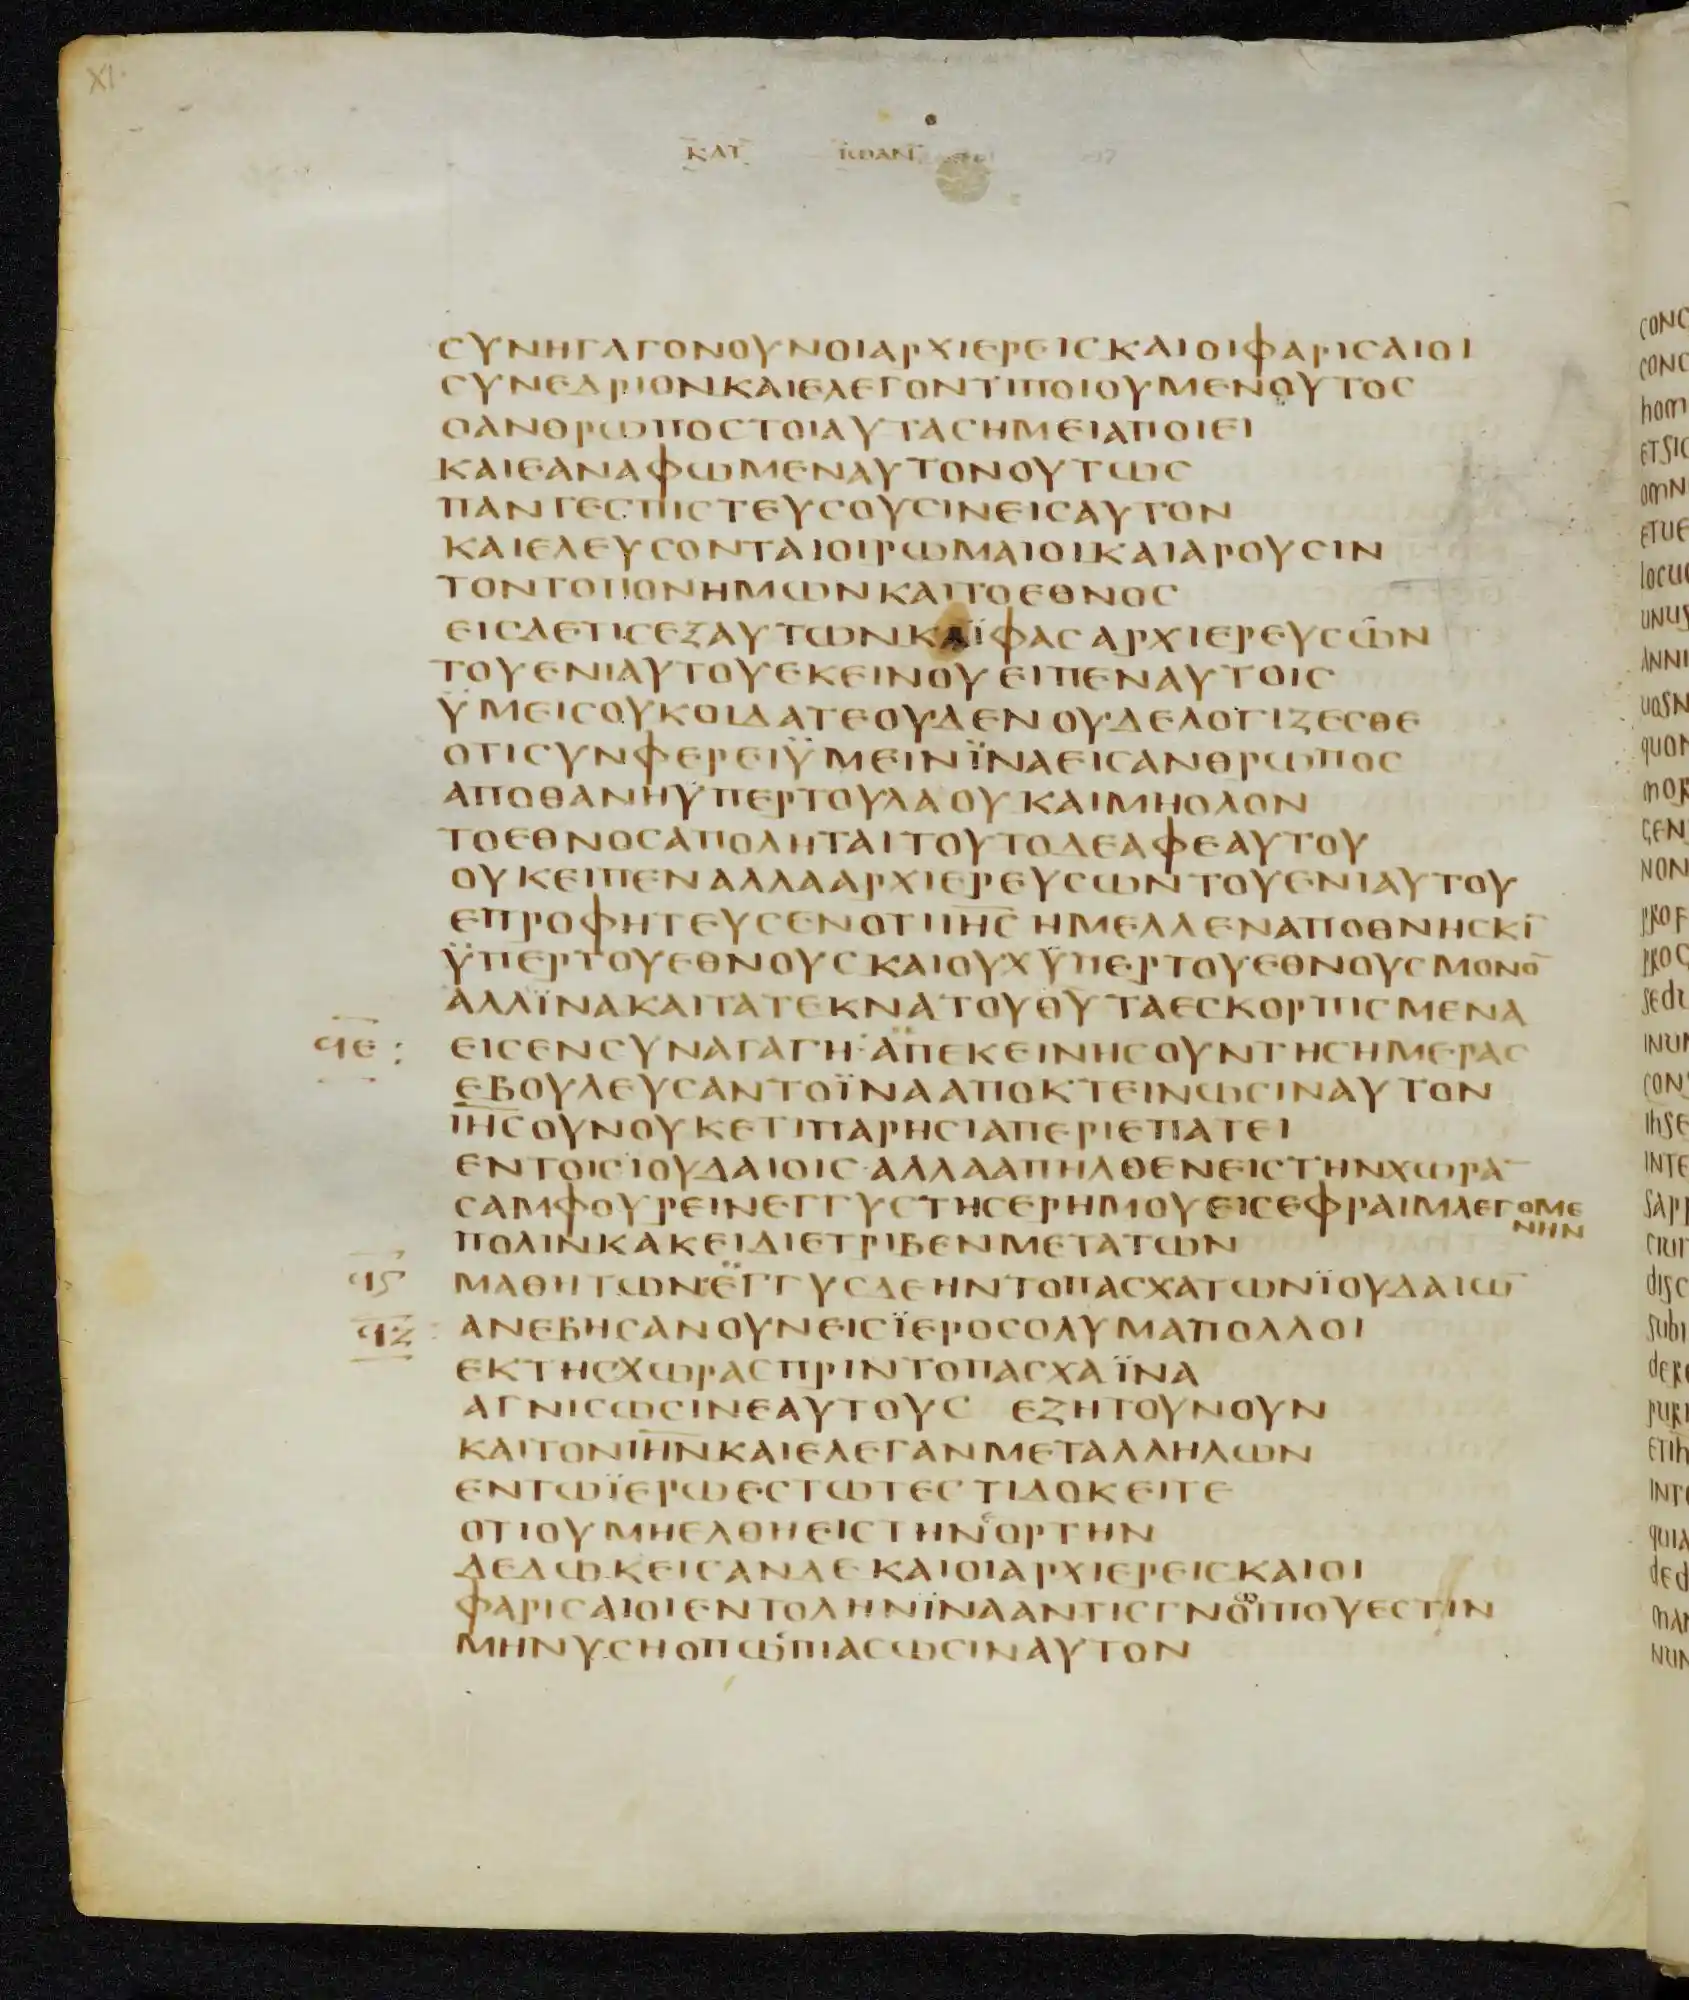 XI
ΚΑΤ ΙΩΑΝ
ϹΥΝΗΓΑΓΟΝΟΥΝΟΙΑΡΧΙΕΡΕΙϹΚΑΙΟΙΦΑΡΙϹΑΙΟΙ
ϹΥΝΕΔΡΙΟΝΚΑΙΕΛΕΓΟΝΤΙΠΟΙΟΥΜΕΝΟΥΤΟϹ
ΟΑΝΘΡΩΠΟϹΤΟΙΑΥΤΑϹΗΜΕΙΑΠΟΙΕΙ
ΚΑΙΕΑΝΑΦΩΜΕΝΑΥΤΟΝΟΥΤΩϹ
ΠΑΝΤΕϹΠΙϹΤΕΥϹΟΥϹΙΝΕΙϹΑΥΤΟΝ
ΚΑΙΕΛΕΥϹΟΝΤΑΙΟΙΡΩΜΑΙΟΙΚΑΙΑΡΟΥϹΙΝ
ΤΟΝΤΟΠΟΝΗΜΩΝΚΑΙΤΟΕΘΝΟϹ
ΕΙϹΔΕΤΙϹΕΞΑΥΤΩΝΚΑΪΦΑϹΑΡΧΙΕΡΕΥϹΩΝ
ΤΟΥΕΝΙΑΥΤΟΥΕΚΕΙΝΟΥΕΙΠΕΝΑΥΤΟΙϹ
ΫΜΕΙϹΟΥΚΟΙΔΑΤΕΟΥΔΕΝΟΥΔΕΛΟΓΙΖΕϹΘΕ
ΟΤΙϹΥΝΦΕΡΕΙΫΜΕΙΝΪΝΑΕΙϹΑΝΘΡΩΠΟϹ
ΑΠΟΘΑΝΗΥΠΕΡΤΟΥΛΑΟΥΚΑΙΜΗΟΛΟΝ
ΤΟΕΘΝΟϹΑΠΟΛΗΤΑΙΤΟΥΤΟΔΕΑΦΕΑΥΤΟΥ
ΟΥΚΕΙΠΕΝΑΛΛΑΑΡΧΙΕΡΕΥϹΩΝΤΟΥΕΝΙΑΥΤΟΥ
ΕΠΡΟΦΗΤΕΥϹΕΝΟΤΙΙΗ̅Ϲ̅ΗΜΕΛΛΕΝΑΠΟΘΝΗϹΚΙ̅
ΫΠΕΡΤΟΥΕΘΝΟΥϹΚΑΙΟΥΧΫΠΕΡΤΟΥΕΘΝΟΥϹΜΟΝΟ̅
ΑΛΛΪΝΑΚΑΙΤΑΤΕΚΝΑΤΟΥΘΥΤΑΕϹΚΟΡΠΙϹΜΕΝΑ
ϥε : ΕΙϹΕΝϹΥΝΑΓΑΓΗ·ΑΠΕΚΕΙΝΗϹΟΥΝΤΗϹΗΜΕΡΑϹ
ΕΒΟΥΛΕΥϹΑΝΤΟΪΝΑΑΠΟΚΤΕΙΝΩϹΙΝΑΥΤΟΝ
Ι̅Η̅Ϲ̅ΟΥΝΟΥΚΕΤΙΠΑΡΗϹΙΑΠΕΡΙΕΠΑΤΕΙ
ΕΝΤΟΙϹΙΟΥΔΑΙΟΙϹ·ΑΛΛΑΑΠΗΛΘΕΝΕΙϹΤΗΝΧΩΡΑ̅
ϹΑΜΦΟΥΡΕΙΝΕΓΓΥϹΤΗϹΕΡΗΜΟΥΕΙϹΕΦΡΑΙΜΛΕΓΟΜΕ
ΝΗΝ
ΠΟΛΙΝΚΑΚΕΙΔΙΕΤΡΙΒΕΝΜΕΤΑΤΩΝ
ϥϛ ΜΑΘΗΤΩΝ·ΕΓΓΥϹΔΕΗΝΤΟΠΑϹΧΑΤΩΝΪΟΥΔΑΙΩ̅
ϥζ : ΑΝΕΒΗϹΑΝΟΥΝΕΙϹΪΕΡΟϹΟΛΥΜΑΠΟΛΛΟΙ
ΕΚΤΗϹΧΩΡΑϹΠΡΙΝΤΟΠΑϹΧΑΪΝΑ
ΑΓΝΙϹΩϹΙΝΕΑΥΤΟΥϹ ΕΖΗΤΟΥΝΟΥΝ
ΚΑΙΤΟΝΙ̅Η̅Ν̅ΚΑΙΕΛΕΓΑΝΜΕΤΑΛΛΗΛΩΝ
ΕΝΤΩΪΕΡΩΕϹΤΩΤΕϹΤΙΔΟΚΕΙΤΕ
ΟΤΙΟΥΜΗΕΛΘΗΕΙϹΤΗΝεΟΡΤΗΝ
ΔΕΔΩΚΕΙϹΑΝΔΕΚΑΙΟΙΑΡΧΙΕΡΕΙϹΚΑΙΟΙ
ΦΑΡΙϹΑΙΟΙΕΝΤΟΛΗΝΪΝΑΑΝΤΙϹΓΝΟΙΠΟΥΕϹΤΙΝ
ΜΗΝΥϹΗΟΠΩϹΠΙΑϹΩϹΙΝΑΥΤΟΝ